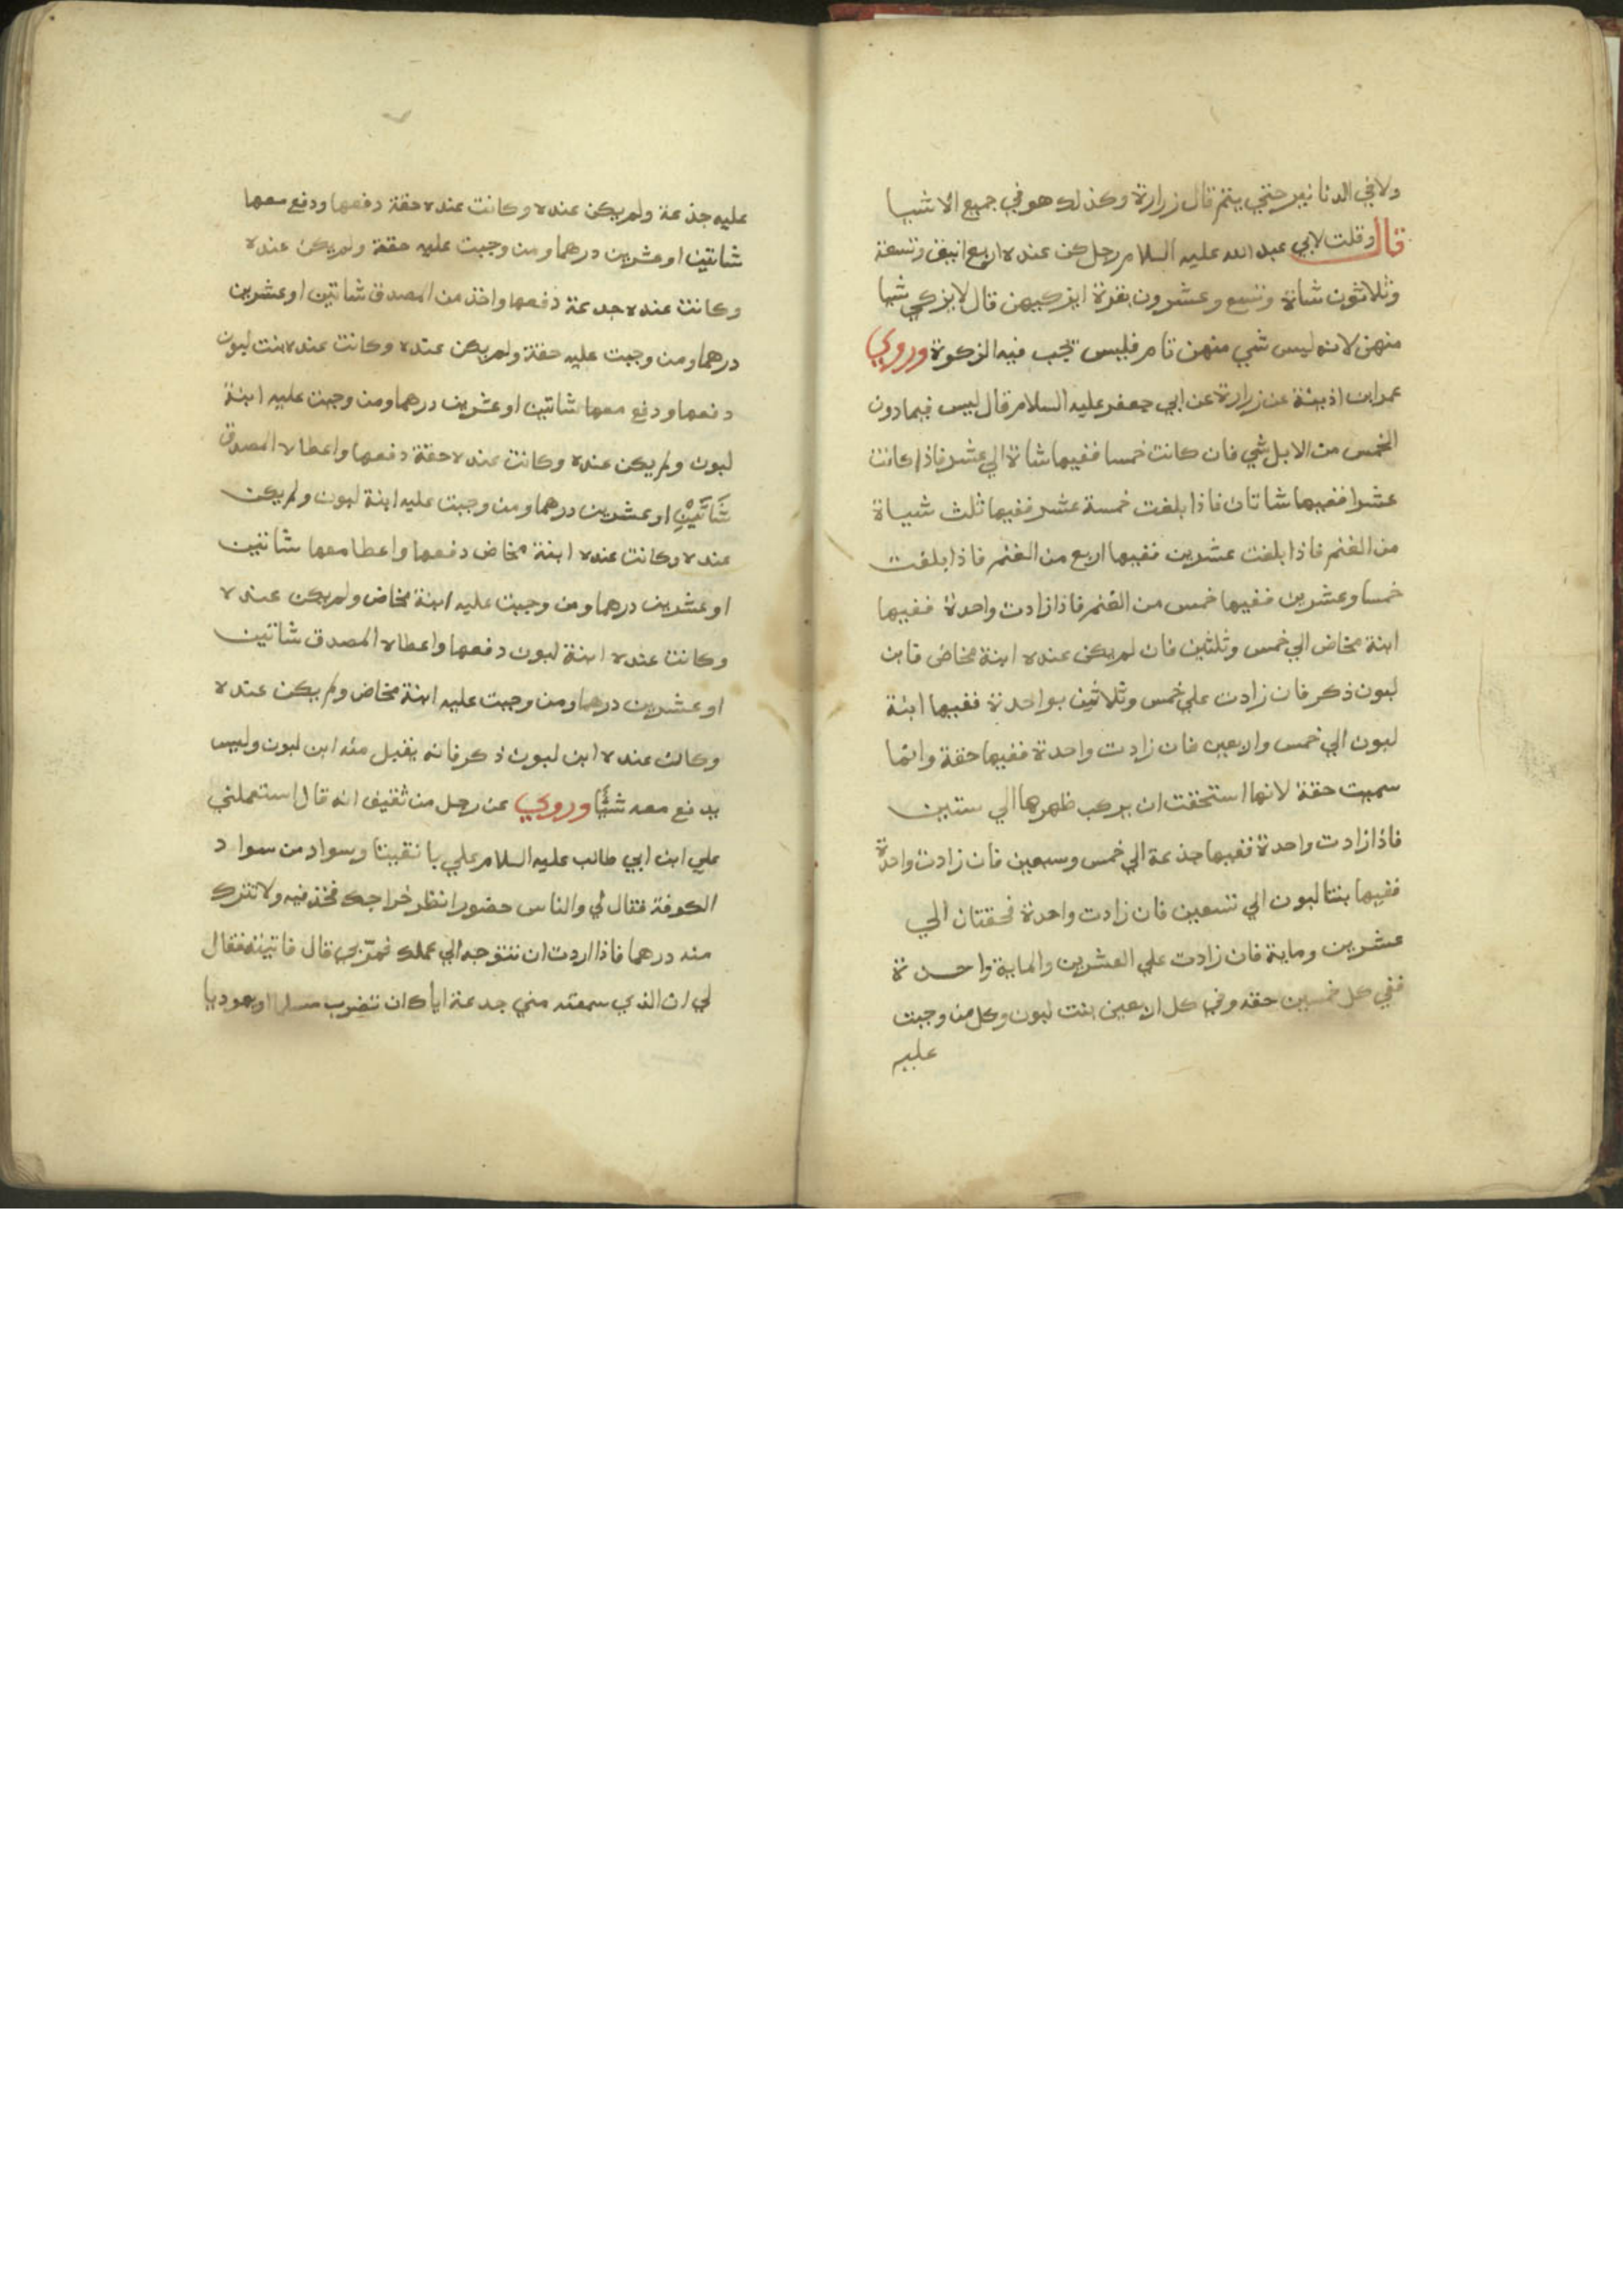 ولا في الدنانير حتي يتم قال زرارة وكذلك هو في جميع الاشيا
قال وقلت لابي عبد الله عليه السلام رجل كن عنده اربع انيق وتسعة
وثلاثون شاة وتسع وعشرون بقرة ايزكيهن قال لا يزكي شيا
منهن لانه ليس شي منهن تام فليس تجب فيه الزكوة وروي
عمر ابن اذينة عن زرارة عن ابي جعفر عليه السلام قال ليس فيما دون
الخمس من الابل شي فان كانت خمسا ففيها شاة الي عشر فاذا كانت
عشرا ففيها شاتان فاذا بلغت خمسة عشر ففيها ثلث شياة
من الغنم فاذا بلغت عشرين ففيها اربع من الغنم فاذا بلغت
خمسا وعشرين ففيها خمس من الغنم فاذا زادت واحدة ففيها
ابنة مخاض الي خمس وثلثين فان لم يكن عنده ابنة مخاض فابن
لبون ذكر فان زادت علي خمس وثلاثين بواحدة ففيها ابنة
لبون الي خمس واربعين فان زادت واحدة ففيها حقة وانما
سميت حقة لانها استحقت ان يركب ظهرها الي ستين
فاذا زادت واحدة ففيها جذعة الي خمس وسبعين فان زادت واحدة
ففيها بنتا لبون الي تسعين فان زادت واحدة فحقتان الي
عشرين وماية فان زادت علي العشرين والماية واحدة
ففي كل خمسين حقه وفي كل اربعين بنت لبون وكل من وجبت
عليه
عليه جذعة ولم يكن عنده وكانت عنده حقة دفعها ودفع معها
شاتين او عشرين درهما ومن وجبت عليه حقة ولم يكن عنده
وكانت عنده جدعة دفعها واخذ من المصدق شاتين او عشرين
درهما ومن وجبت عليه حقة ولم يكن عنده وكانت عنده بنت لبون
دفعها ودفع معها شاتين او عشرين درهما ومن وجبت عليه ابنة
لبون ولم يكن عنده وكانت عنده حقة دفعها واعطاه المصدق
شَاتَيْنِ او عشرين درهما ومن وجبت عليه ابنة لبون ولم يكن
عنده وكانت عنده ابنة مخاض دفعها واعطا معها شاتين
او عشرين درهما ومن وجبت عليه ابنة مخاض ولم يكن عنده
وكانت عنده ابنة لبون دفعها واعطاه المصدق شاتين
او عشرين درهما ومن وجبت عليه ابنة مخاض ولم يكن عنده
وكانت عنده ابن لبون ذكر فانه يقبل منه ابن لبون وليس
يدفع معه شيًا وروي عن رجل من ثقيف انه قال استعملني
علي ابن ابي طالب عليه السلام علي بانقيتا وسواد من سواد
الكوفة فقال لي والناس حضور انظر خراجك فخذ فيه ولا تترك
منه درهما فاذا اردت ان تتوجه الي عملك فمرّ بي قال فاتيته فقال
لي ان الذي سمعته مني جدعة اياك ان تضرب مسلما او يهوديا